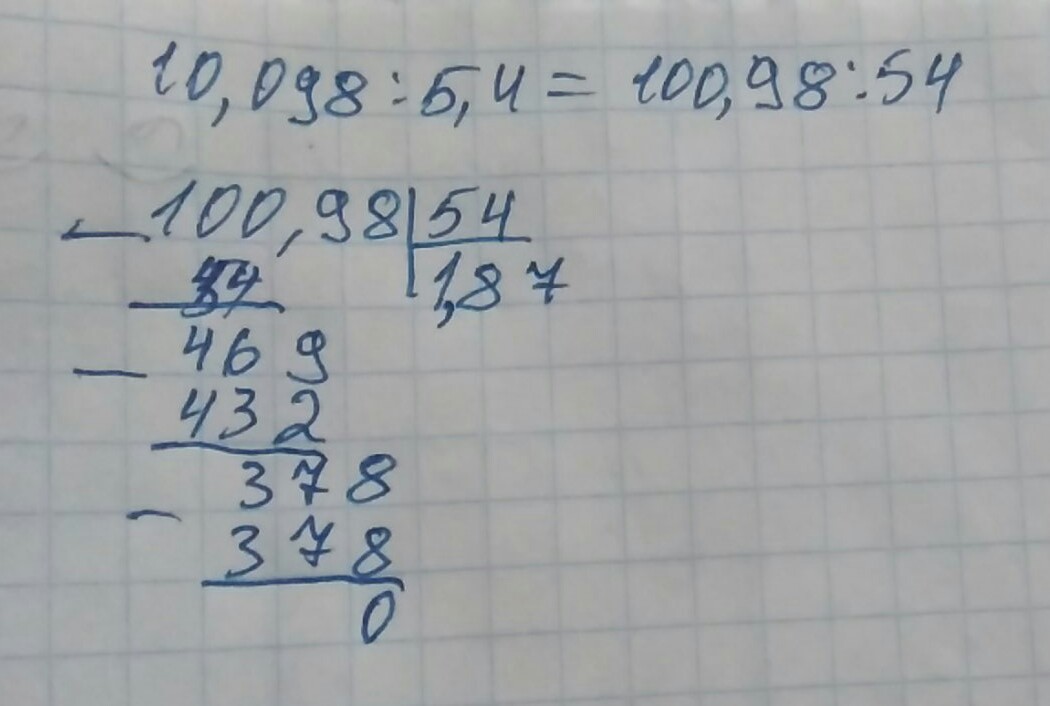 10,098:5,4= 100,98:54
100,98 54
54 1,87
- 469
432
- 378
378
0